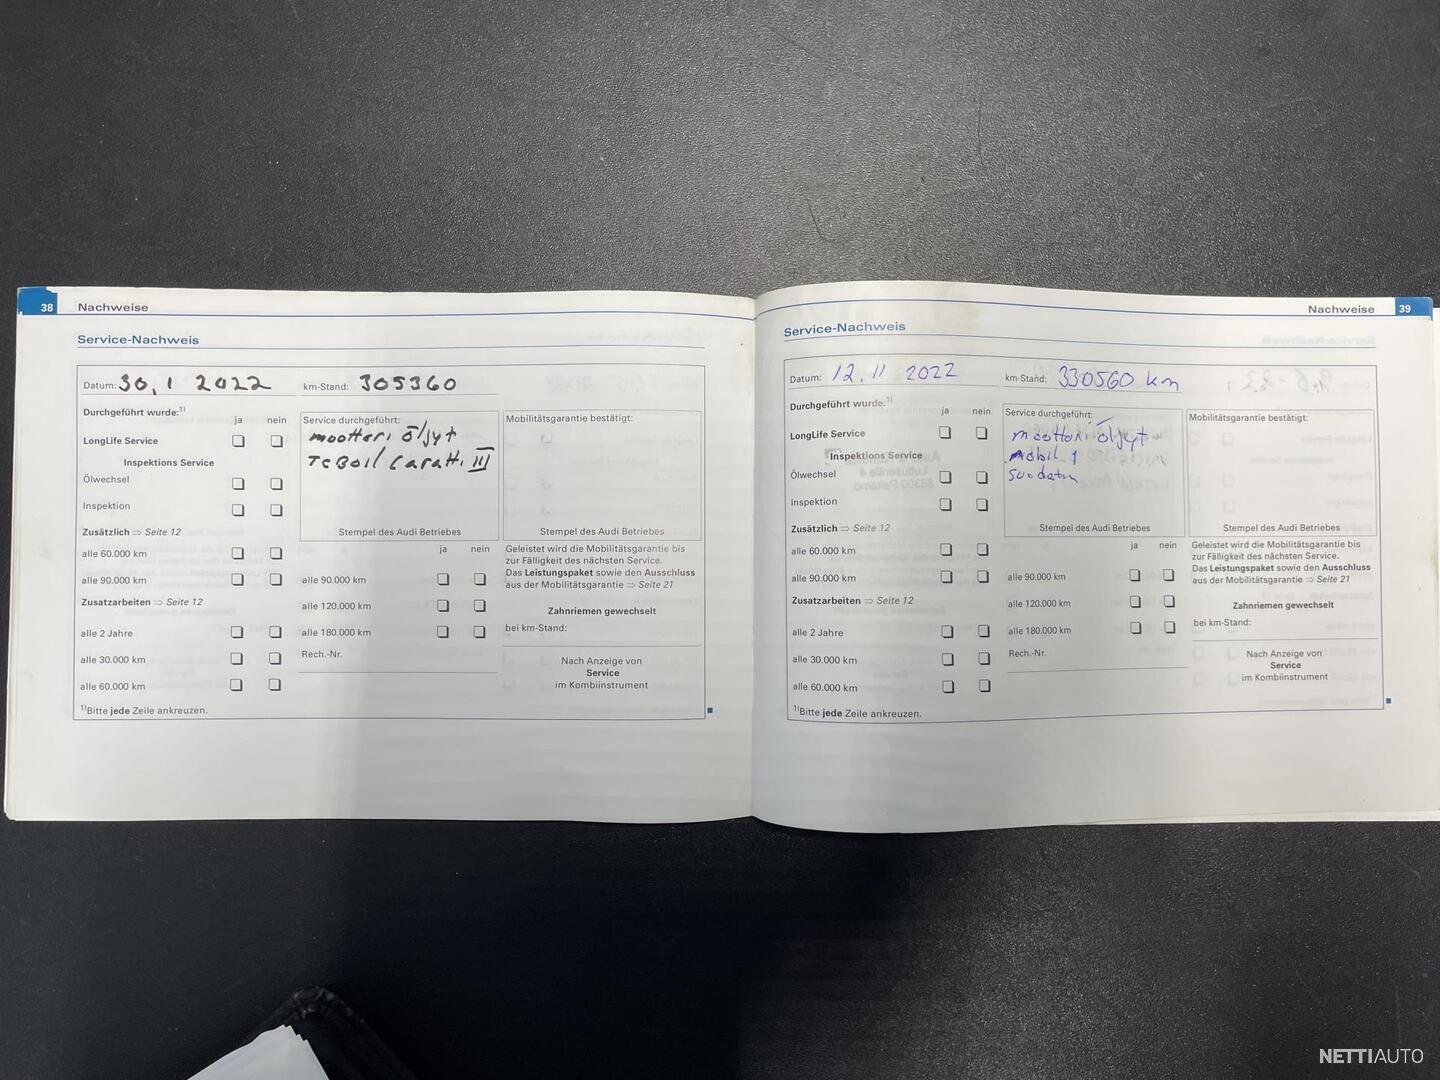 38 Nachweise
Service-Nachweis
Datum: 30.1 2022 km-Stand: 305360
Durchgeführt wurde:1)
ja nein
LongLife Service
Inspektions Service
Ölwechsel
Inspektion
Zusätzlich ⇒ Seite 12
alle 60.000 km
alle 90.000 km
Zusatzarbeiten ⇒ Seite 12
alle 2 Jahre
alle 30.000 km
alle 60.000 km
1)Bitte jede Zeile ankreuzen.
Service durchgeführt:
moottori öljyt
Teboil Caratti III
Stempel des Audi Betriebes
ja nein
alle 90.000 km
alle 120.000 km
alle 180.000 km
Rech.-Nr.
Mobilitätsgarantie bestätigt:
Stempel des Audi Betriebes
Geleistet wird die Mobilitätsgarantie bis
zur Fälligkeit des nächsten Service.
Das Leistungspaket sowie den Ausschluss
aus der Mobilitätsgarantie ⇒ Seite 21
Zahnriemen gewechselt
bei km-Stand:
Nach Anzeige von
Service
im Kombiinstrument
Nachweise 39
Service-Nachweis
Datum: 12.11 2022 km-Stand: 330560 km
Durchgeführt wurde:1)
ja nein
LongLife Service
Inspektions Service
Ölwechsel
Inspektion
Zusätzlich ⇒ Seite 12
alle 60.000 km
alle 90.000 km
Zusatzarbeiten ⇒ Seite 12
alle 2 Jahre
alle 30.000 km
alle 60.000 km
1)Bitte jede Zeile ankreuzen.
Service durchgeführt:
moottori öljyt
mobil 1
suodatin
Stempel des Audi Betriebes
ja nein
alle 90.000 km
alle 120.000 km
alle 180.000 km
Rech.-Nr.
Mobilitätsgarantie bestätigt:
Stempel des Audi Betriebes
Geleistet wird die Mobilitätsgarantie bis
zur Fälligkeit des nächsten Service.
Das Leistungspaket sowie den Ausschluss
aus der Mobilitätsgarantie ⇒ Seite 21
Zahnriemen gewechselt
bei km-Stand:
Nach Anzeige von
Service
im Kombiinstrument
NETTIAUTO